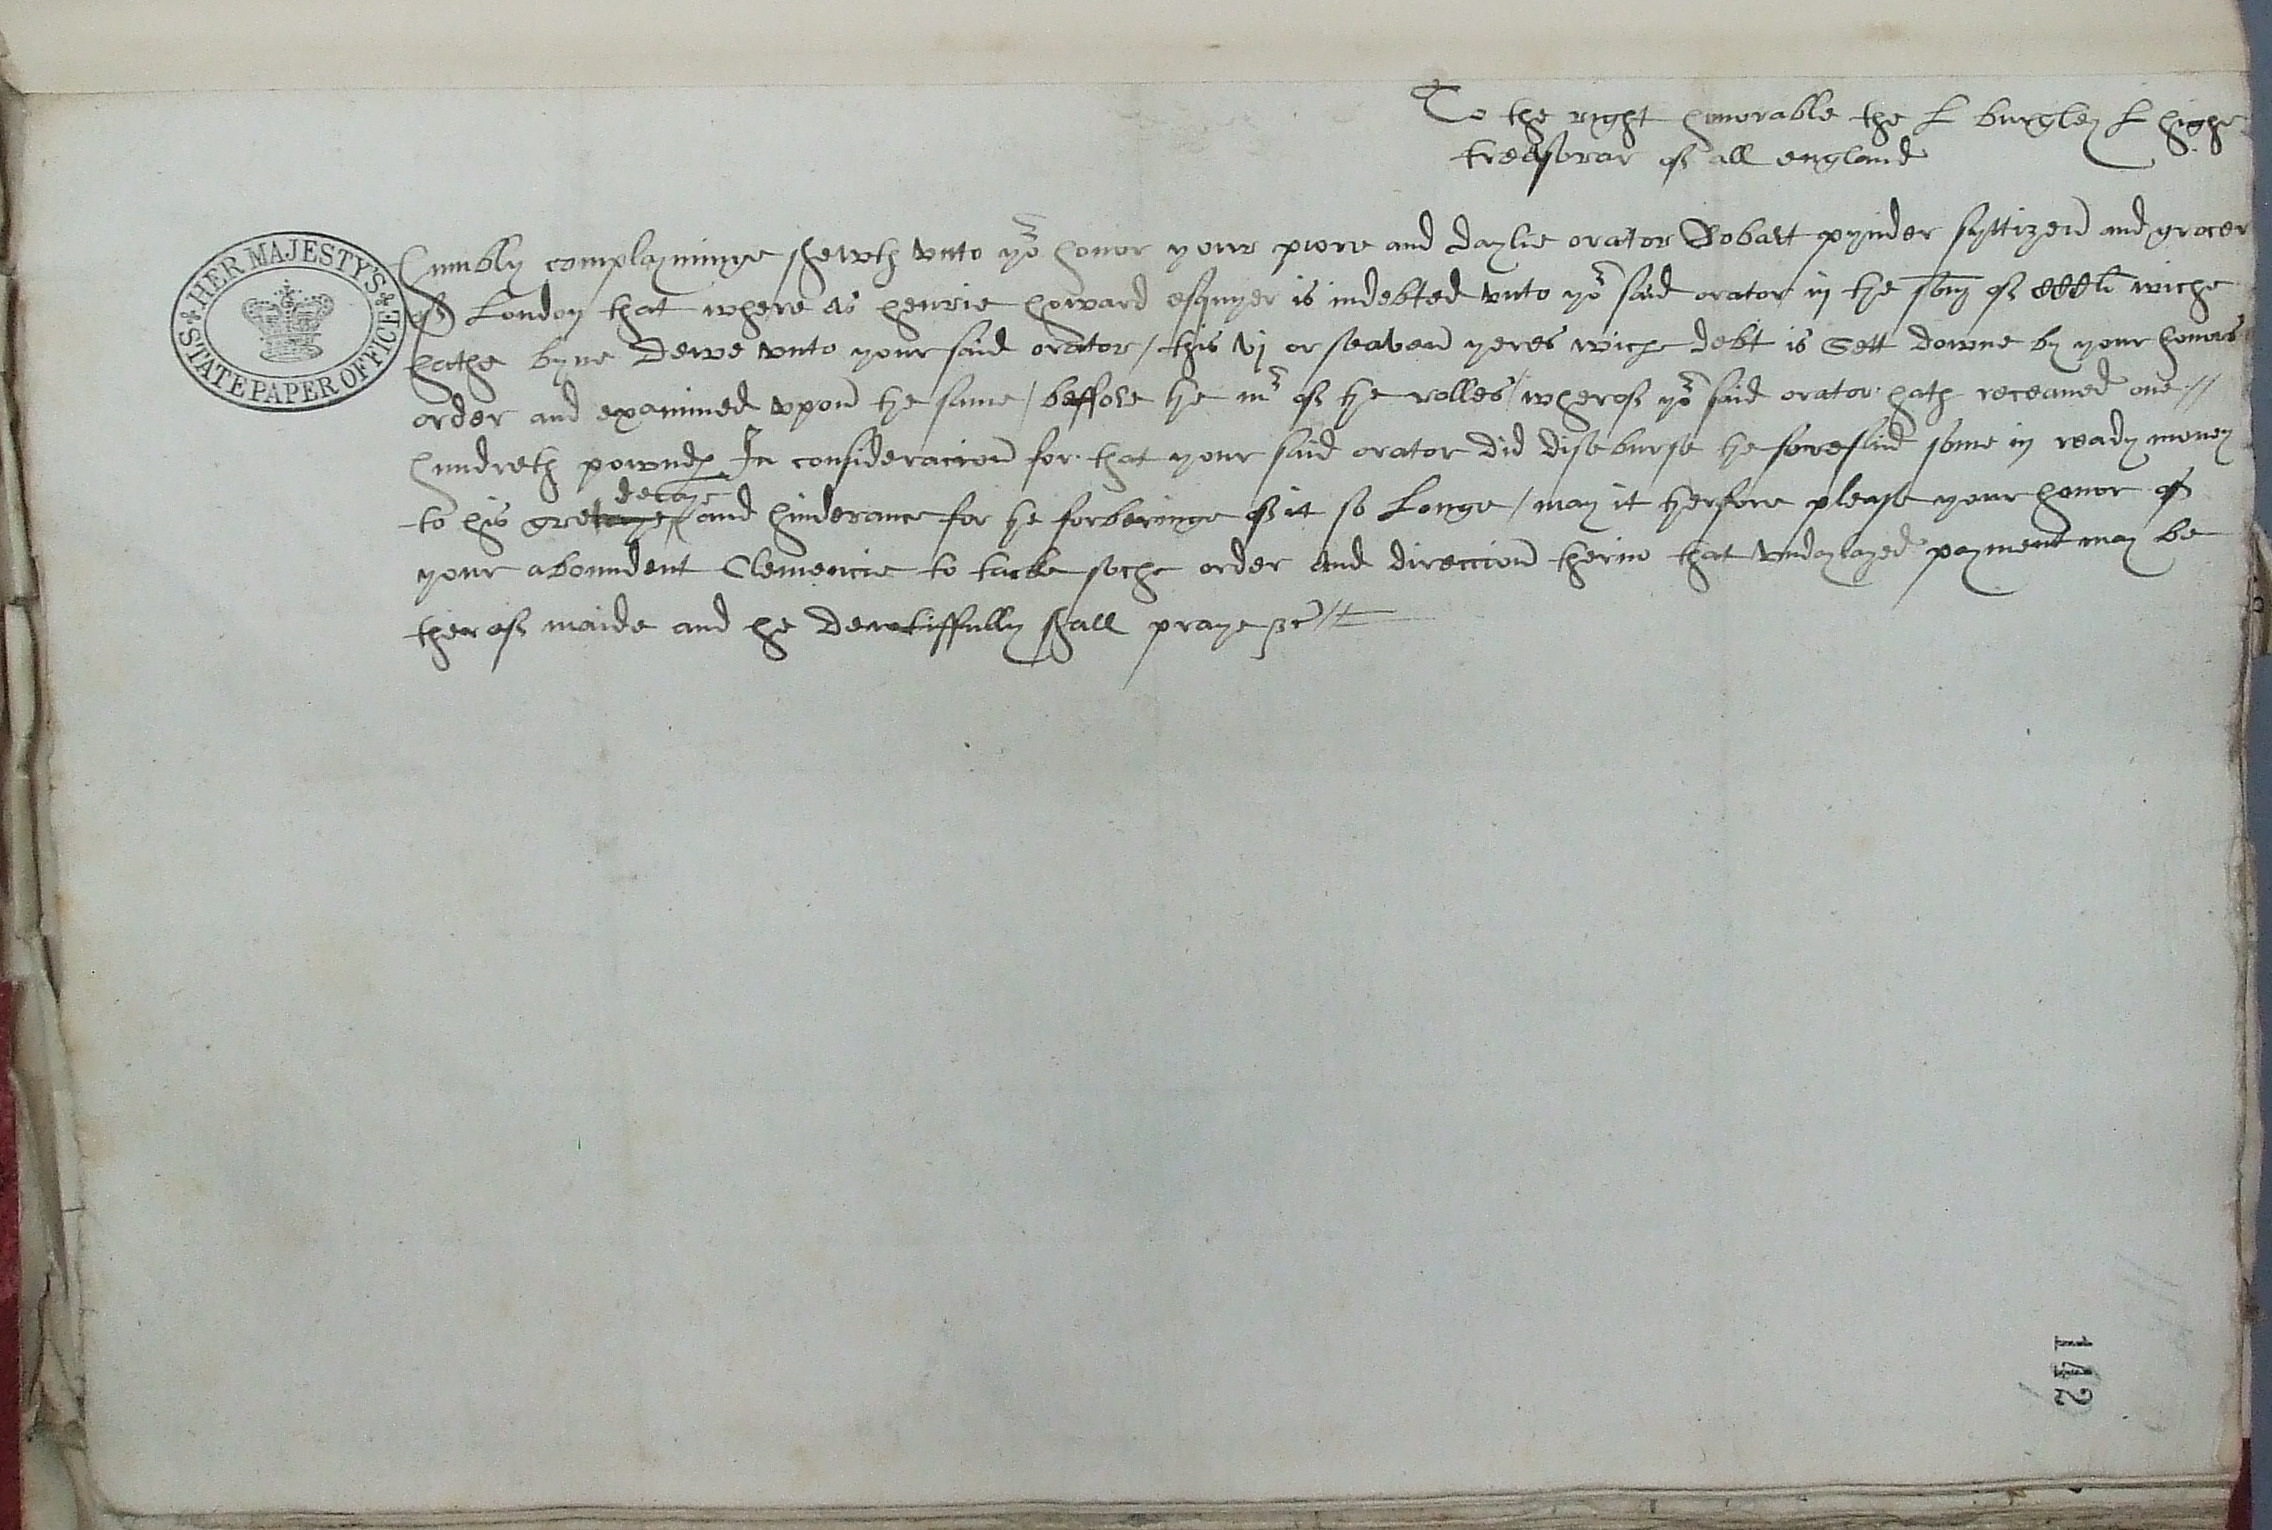 To the right honorable the L burgley L highe
treasorar of all england
HER MAJESTY'S STATE PAPER OFFICE
humbly complayninge sheweth vnto yor honor your poore and daylie orator Robart pynder syttizen and grocer
of London that where as henrie howard esquyer is indebted vnto yor said orator in the som of CCCli wiche
hathe byne dewe vnto your said orator / this vj or seaven yeres wiche debt is sett downe by your honors
order and examined vpon the same / beffore the mr of the rolles / wherof yor said orator hath receaued one //
hundreth pownds In consideracion for that your said orator did disburse the foresaid some in ready money
decaye
to his gret and hinderance for the forberinge of it so Longe / may it therfore please your honor of
your aboundent Clemencie to tacke soche order and direccion therin that vndaylayed payment may be
therof maide and he dewtiffully shall praye &c //
112